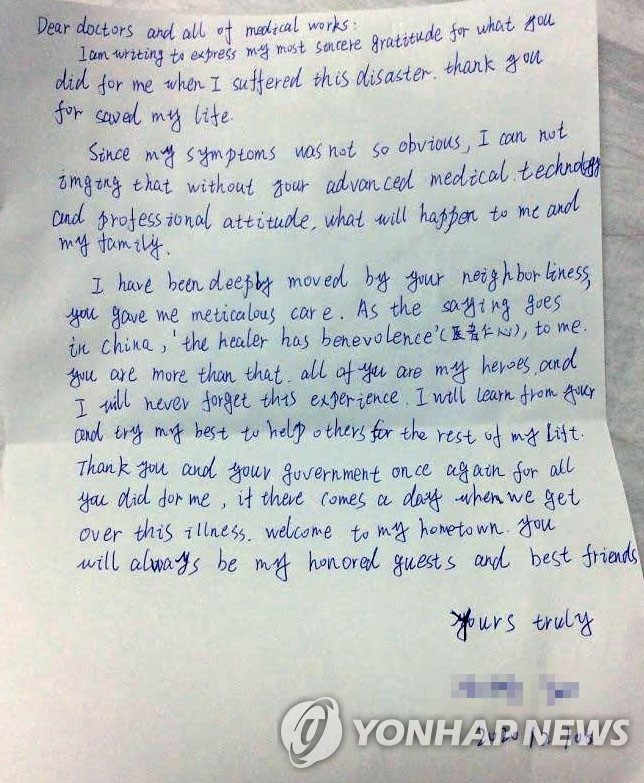 Dear doctors and all of medical works:
I am writing to express my most sencere gratitude for what you
did for me when I suffered this disaster. thank you
for saved my life.
Since my symptoms was not so obvious, I can not
imging that without your advanced medical technology
and professional attitude, what will happen to me and
my family.
I have been deeply moved by your neighborliness,
you gave me meticalous care. As the saying goes
in china, 'the healer has benevolence' (医者仁心), to me.
you are more than that. all of you are my heroes. and
I will never forget this experience. I will learn from your
and try my best to help others for the rest of my lift.
Thank you and your government once again for all
you did for me, if there comes a day when we get
over this illness. welcome to my hometown. you
will always be my honored guests and best friends
yours truly
YONHAP NEWS
2020